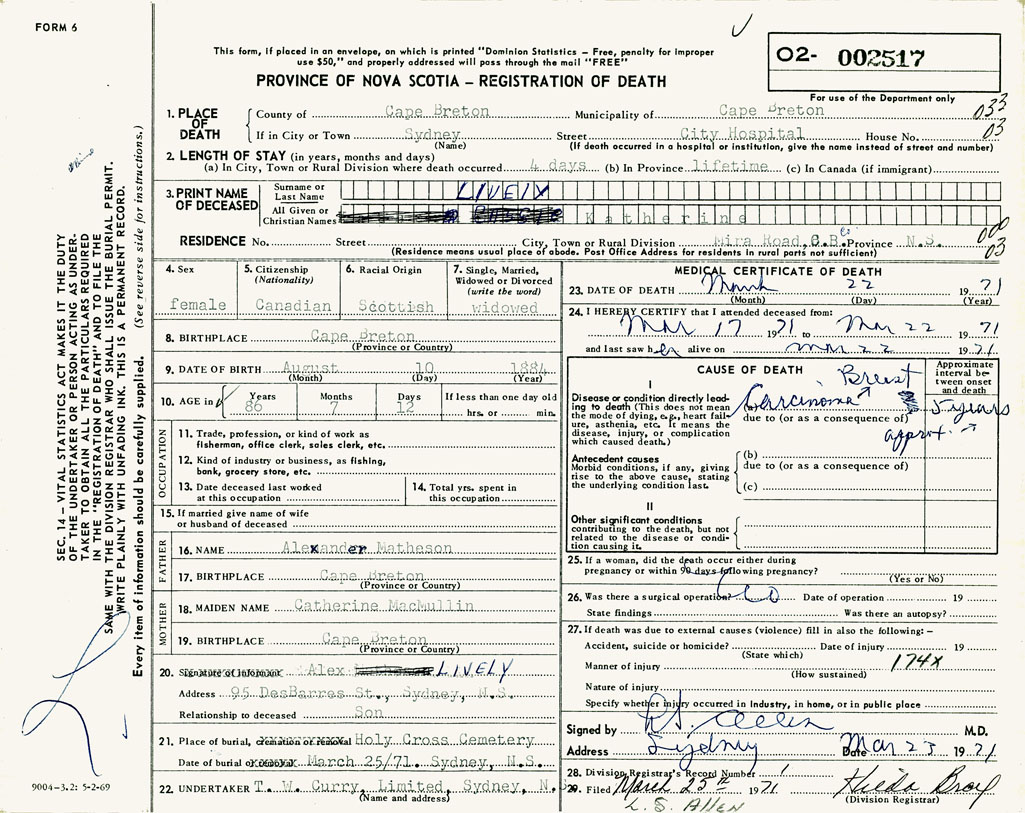 FORM 6
This form, if placed in an envelope, on which is printed "Dominion Statistics – Free, penalty for improper
use $50," and properly addressed will pass through the mail "FREE"
PROVINCE OF NOVA SCOTIA – REGISTRATION OF DEATH
02- 002517
For use of the Department only
033
03
1. PLACE OF DEATH
County of Cape Breton Municipality of Cape Breton
If in City or Town Sydney Street City Hospital House No.
(Name) (If death occurred in a hospital or institution, give the name instead of street and number)
2. LENGTH OF STAY (in years, months and days)
(a) In City, Town or Rural Division where death occurred 4 days (b) In Province lifetime (c) In Canada (if immigrant)
3. PRINT NAME OF DECEASED
Surname or Last Name LIVELY
All Given or Christian Names Katherine
RESIDENCE No. Street City, Town or Rural Division Mira Road, C.B. Co Province N.S.
(Residence means usual place of abode. Post Office Address for residents in rural parts not sufficient)
000
03
4. Sex
female
5. Citizenship
(Nationality)
Canadian
6. Racial Origin
Scottish
7. Single, Married,
Widowed or Divorced
(write the word)
widowed
8. BIRTHPLACE Cape Breton
(Province or Country)
9. DATE OF BIRTH August 10 1884
(Month) (Day) (Year)
10. AGE in
Years 86
Months 7
Days 12
If less than one day old
hrs. or min.
OCCUPATION
11. Trade, profession, or kind of work as
fisherman, office clerk, sales clerk, etc.
12. Kind of industry or business, as fishing,
bank, grocery store, etc.
13. Date deceased last worked
at this occupation
14. Total yrs. spent in
this occupation
15. If married give name of wife
or husband of deceased
FATHER
16. NAME Alexander Matheson
17. BIRTHPLACE Cape Breton
(Province or Country)
MOTHER
18. MAIDEN NAME Catherine MacMullin
19. BIRTHPLACE Cape Breton
(Province or Country)
20. Signature of informant Alex LIVELY
Address 95 DesBarres St., Sydney, N.S.
Relationship to deceased Son
21. Place of burial, cremation or removal Holy Cross Cemetery
Date of burial or removal March 25/71. Sydney, N.S.
22. UNDERTAKER T. W. Curry, Limited, Sydney, N.S.
(Name and address)
MEDICAL CERTIFICATE OF DEATH
23. DATE OF DEATH March 22 1971
(Month) (Day) (Year)
24. I HEREBY CERTIFY that I attended deceased from:
Mar 17 1971 to Mar 22 1971
and last saw her alive on Mar 22 1971
CAUSE OF DEATH
Approximate
interval be-
tween onset
and death
I
Disease or condition directly lead-
ing to death (This does not mean
the mode of dying, e.g., heart fail-
ure, asthenia, etc. It means the
disease, injury, or complication
which caused death.)
(a) Carcinoma Breast
due to (or as a consequence of)
5 years
approx.
Antecedent causes
Morbid conditions, if any, giving
rise to the above cause, stating
the underlying condition last.
(b)
due to (or as a consequence of)
(c)
II
Other significant conditions
contributing to the death, but not
related to the disease or condi-
tion causing it.
25. If a woman, did the death occur either during
pregnancy or within 90 days following pregnancy?
(Yes or No)
26. Was there a surgical operation? Date of operation 19
State findings Was there an autopsy?
27. If death was due to external causes (violence) fill in also the following: –
Accident, suicide or homicide? Date of injury 19
(State which)
Manner of injury 174X
(How sustained)
Nature of injury
Specify whether injury occurred in Industry, in home, or in public place
Signed by M.D.
Address Sydney Date Mar 23 1971
28. Division Registrar's Record Number
29. Filed March 25th 1971
(Division Registrar)
L. S. ALLEN
SEC. 14 – VITAL STATISTICS ACT MAKES IT THE DUTY
OF THE UNDERTAKER OR PERSON ACTING AS UNDER-
TAKER TO OBTAIN ALL THE PARTICULARS REQUIRED
IN THE "REGISTRATION OF DEATH" AND TO FILE THE
SAME WITH THE DIVISION REGISTRAR WHO SHALL ISSUE THE BURIAL PERMIT.
WRITE PLAINLY WITH UNFADING INK. THIS IS A PERMANENT RECORD.
Every item of information should be carefully supplied. (See reverse side for instructions.)
9004-3.2: 5-2-69